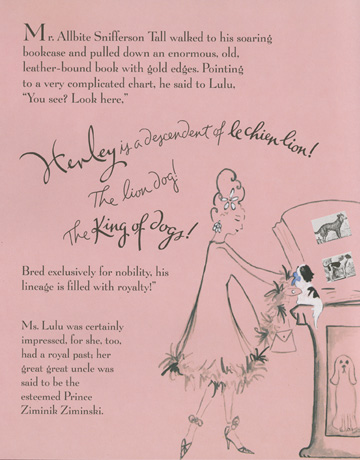 Mr. Allbite Snifferson Tall walked to his soaring
bookcase and pulled down an enormous, old,
leather-bound book with gold edges. Pointing
to a very complicated chart, he said to Lulu,
“You see? Look here.”
Henley is a descendent of le chien lion!
The lion dog!
The King of dogs!
Bred exclusively for nobility, his
lineage is filled with royalty!”
Ms. Lulu was certainly
impressed, for she, too,
had a royal past; her
great great uncle was
said to be the
esteemed Prince
Ziminik Ziminski.